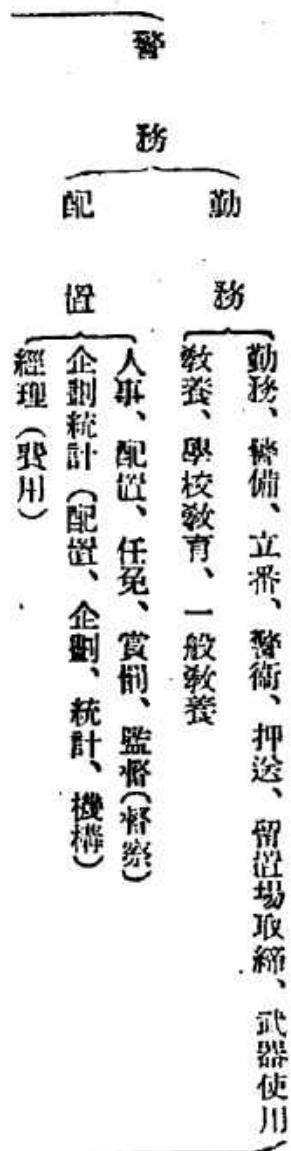 警務
勤務
勤務、警備、立番、警衞、押送、留置場取締、武器使用
敎養、學校敎育、一般敎養
配置
人事、配置、任免、賞罰、監督(督察)
企劃統計(配置、企劃、統計、機構)
經理(費用)